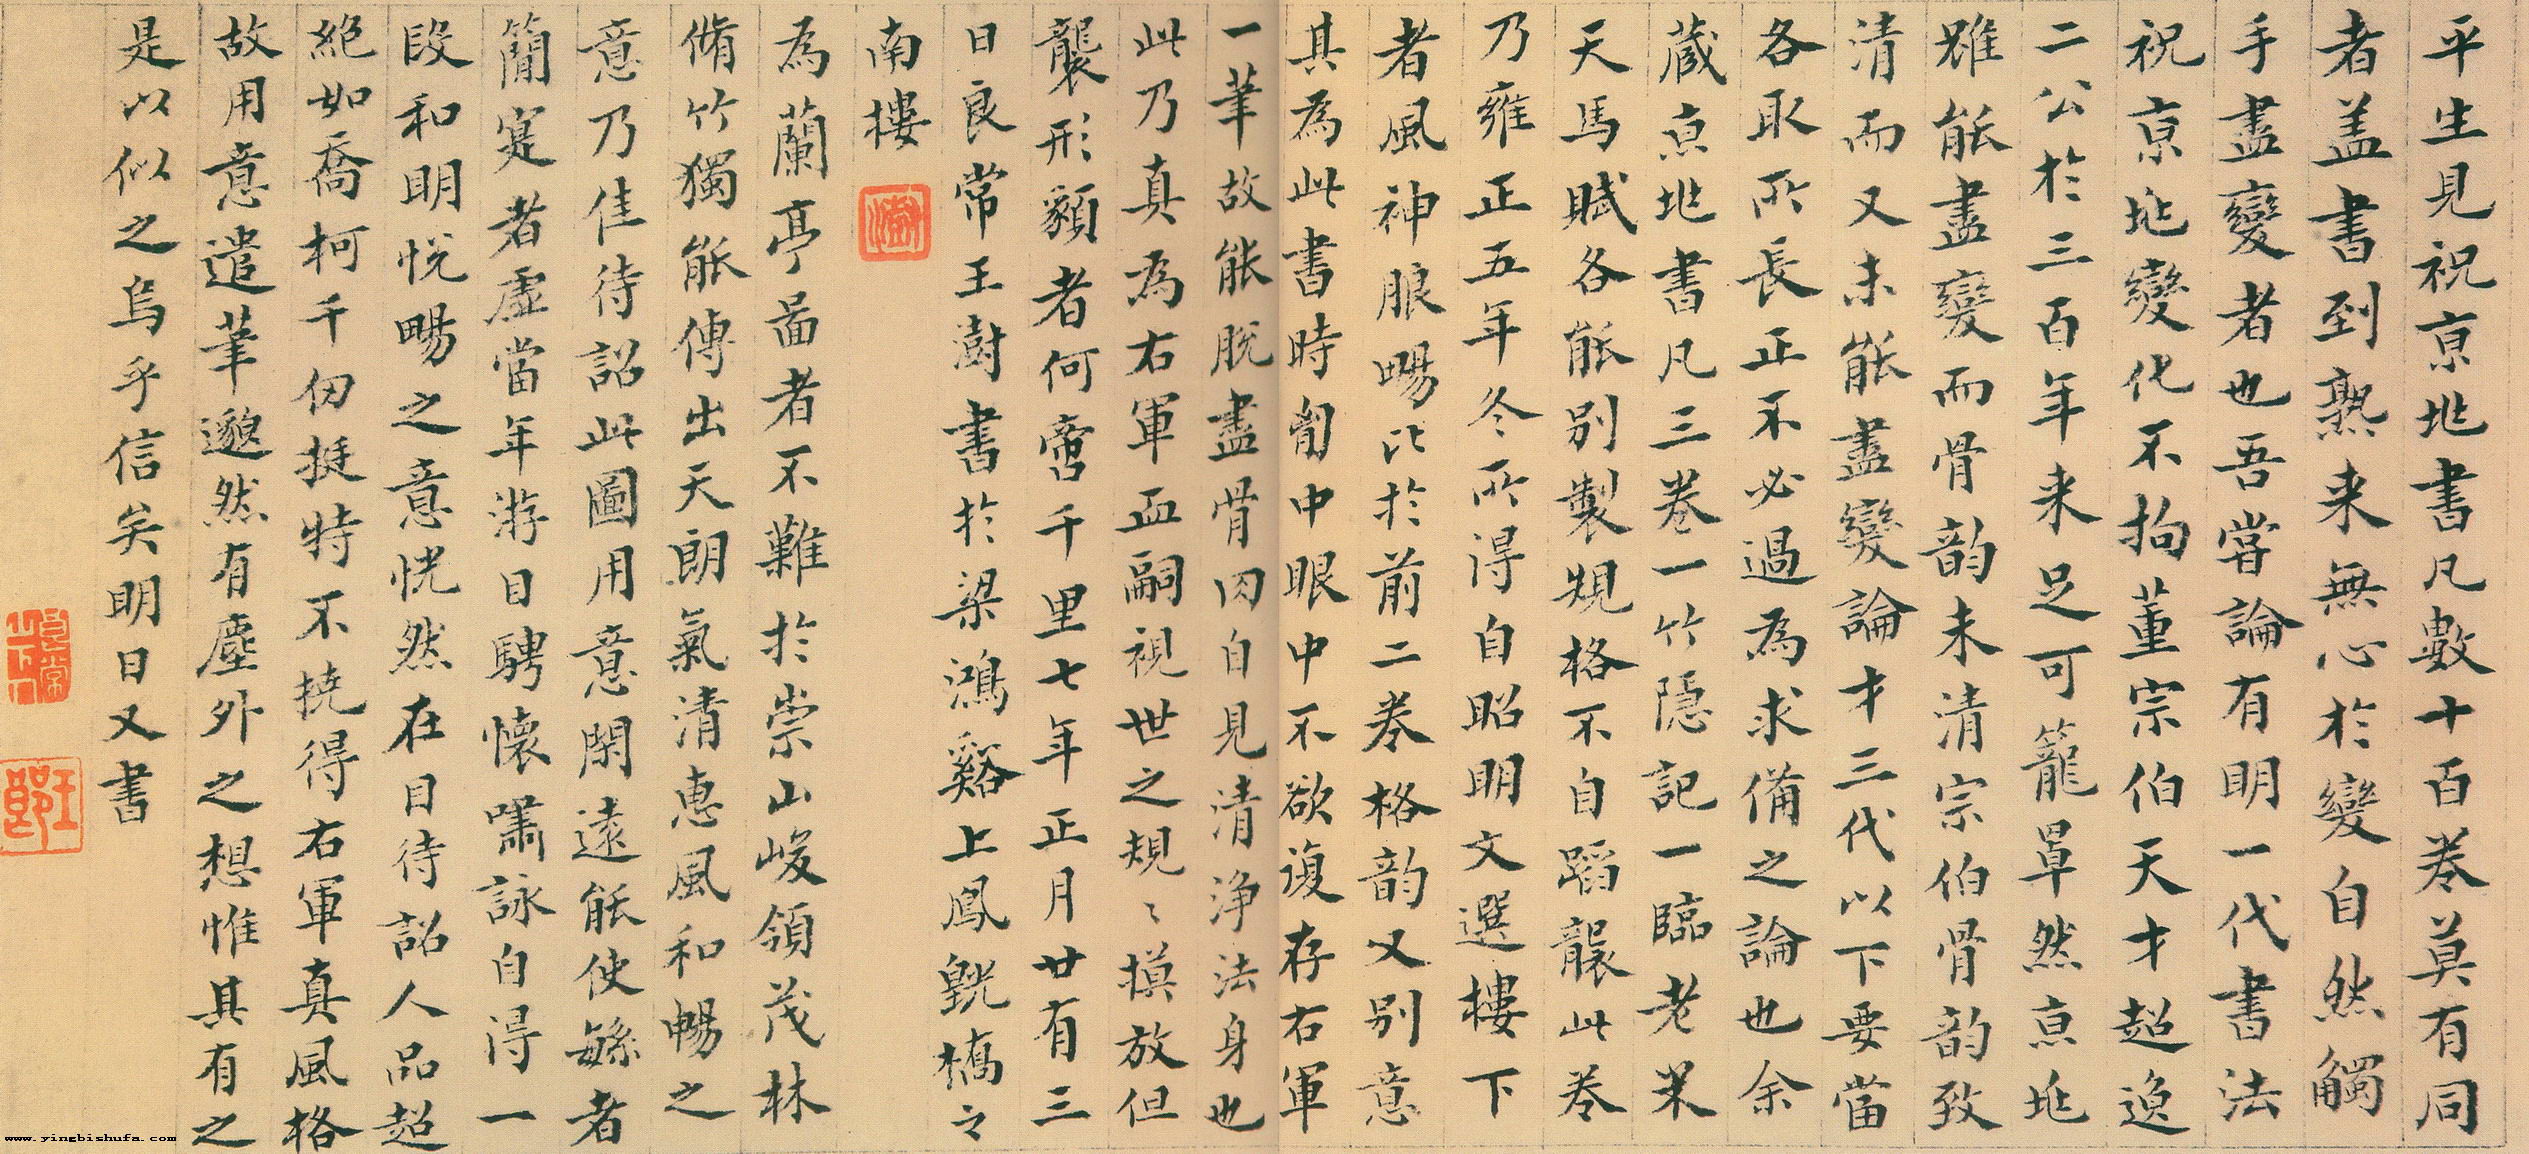 平生見祝京兆書凡數十百卷莫有同
者盖書到熟来無心於變自然觸
手盡變者也吾嘗論有明一代書法
祝京兆變化不拘董宗伯天才超逸
二公於三百年来足可籠罩然京兆
雖能盡變而骨韵未清宗伯骨韵致
清而又未能盡變論才三代以下要當
各取所長正不必過為求備之論也余
蔵京兆書凡三卷一竹隱記一臨老米
天馬賦各能別製規格不自蹈襲此卷
乃雍正五年冬所得自昭明文選樓下
者風神腴暢比於前二卷格韵又別意
其為此書時胷中眼中不欲復存右軍
一筆故能脫盡骨肉自見清淨法身也
此乃真為右軍血嗣視世之規〻摸放但
襲形貌者何啻千里七年正月廿有三
日良常王澍書於梁鴻谿上鳳凰橋之
南樓
澍
為蘭亭啚者不難於崇山峻領茂林
脩竹獨能傳出天朗氣清惠風和暢之
意乃佳待詔此圖用意閑遠能使繇者
簡寔者虛當年游目騁懷嘯詠自得一
段和明悅暢之意恍然在目待詔人品超
絕如喬柯千仞挺特不撓得右軍真風格
故用意遣筆邈然有塵外之想惟其有之
是以似之烏乎信矣明日又書
www.yingbishufa.com